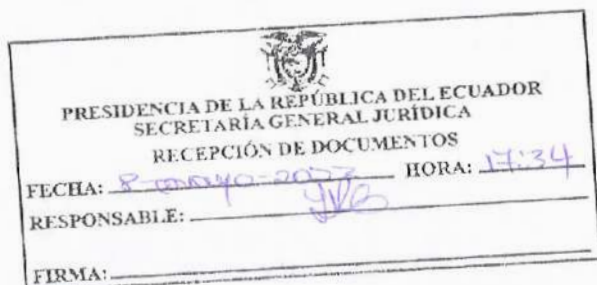 PRESIDENCIA DE LA REPÚBLICA DEL ECUADOR
SECRETARÍA GENERAL JURÍDICA
RECEPCIÓN DE DOCUMENTOS
FECHA: 8-mayo- HORA: 17:34
RESPONSABLE:
FIRMA: